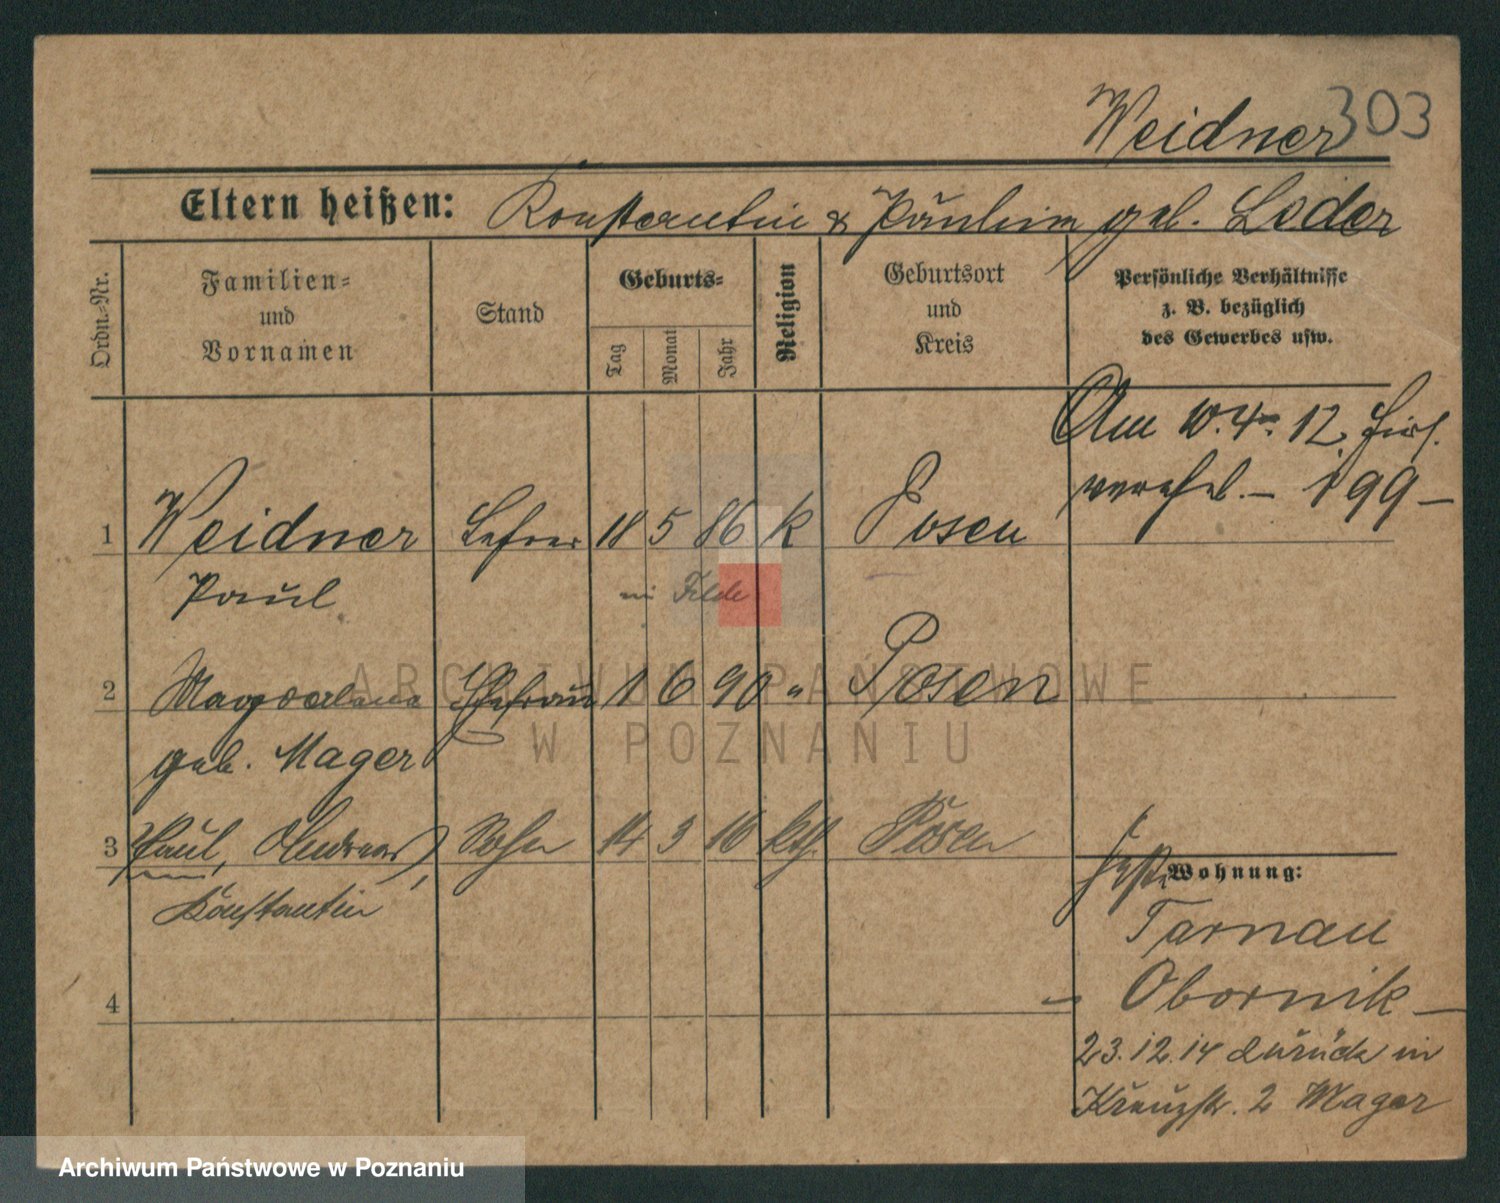 Weidner 303
Eltern heißen: Konstantin & Paulin geb. Leder
Ordn.-Nr.
Familien-
und
Vornamen
Stand
Geburts-
Tag
Monat
Jahr
Religion
Geburtsort
und
Kreis
Persönliche Verhältnisse
z. B. bezüglich
des Gewerbes usw.
Am 10.4. 12 hier
verehel. – 199 –
1 Weidner Lehrer 18 5 86 k Posen
Paul im Felde
2 Magdalena Ehefrau 1 6 90 " Posen
geb. Mager
3 Paul, Andreas, Sohn 14 3 16 kth. Posen
Konstantin
4
Wohnung:
Tarnau
Obornik –
23.12.14 zurück in
Kreuzstr. 2 Mager
ARCHIWUM PAŃSTWOWE
W POZNANIU
Archiwum Państwowe w Poznaniu